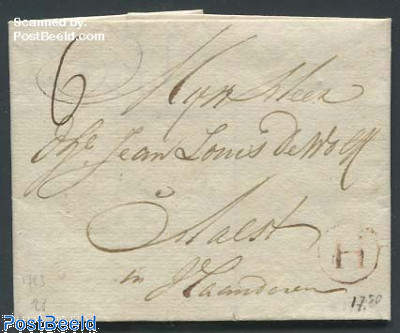 Scanned by:
PostBeeld.com
6
Mijn Heer
Jean Louis De Wolff
Aalst
in Vlaanderen
H
17.50
PostBeeld